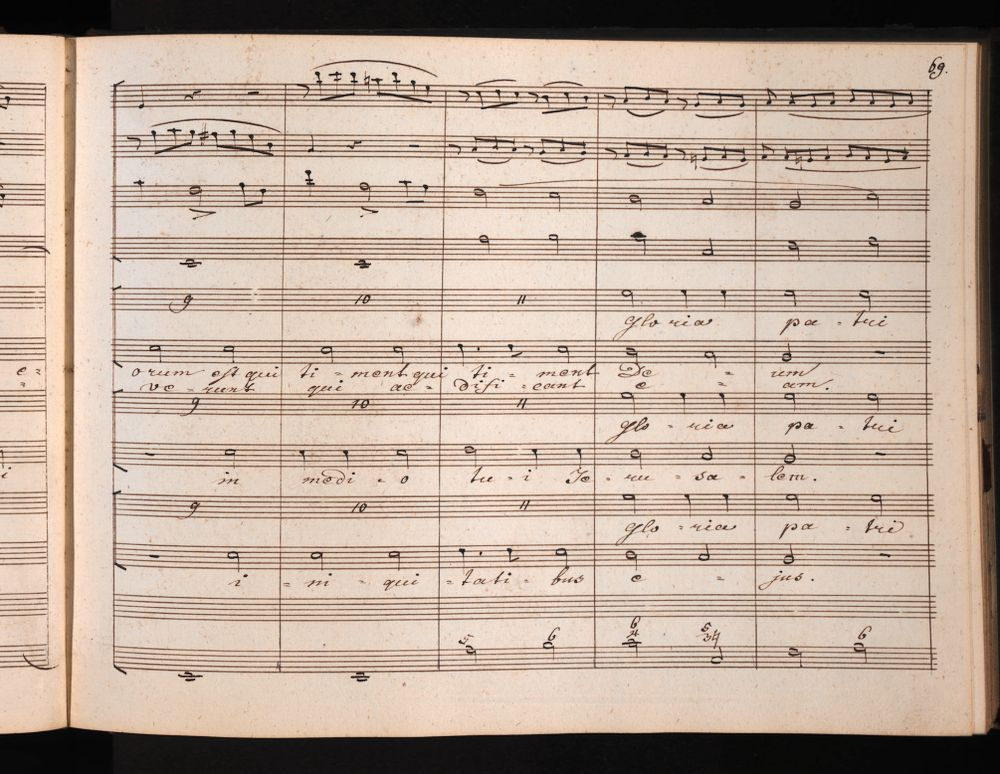 69.
9 10 11
gloria pa - tri
e =
orum est qui ti = ment qui ti = ment De = um
ve - runt qui ae = difi = cant e = am.
9 10 11
glo - ria pa - tri
i in medi = o tu = i Je = ru = sa = lem.
9 10 11
glo - ria pa - tri
i = ni = qui = tati = bus e = jus.
5 6 6 4 5 6